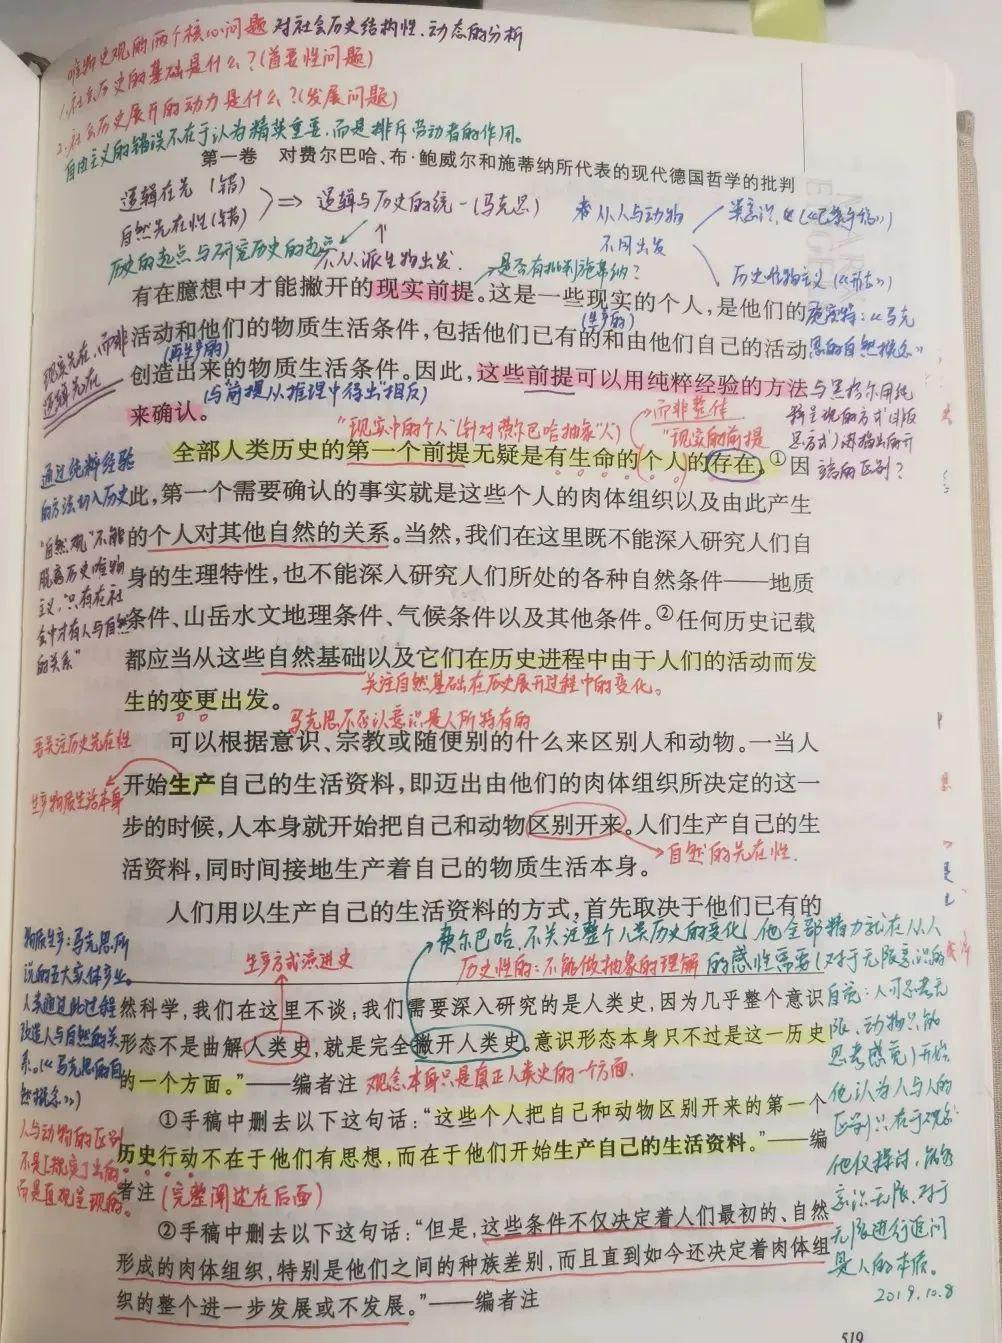 唯物史观的两个核心问题 对社会历史结构性、动态的分析
1.社会历史的基础是什么?(首要性问题)
2.社会历史展开的动力是什么?(发展问题)
自由主义的错误不在于认为精英重要,而是排斥劳动者的作用。
第一卷 对费尔巴哈、布·鲍威尔和施蒂纳所代表的现代德国哲学的批判
逻辑在先(错)
自然先在性(错)
⇒ 逻辑与历史的统一(马克思)
历史的起点与研究历史的起点
不从派生物出发.
是否有批判施蒂纳?
从人与动物
不同出发
历史唯物主义(《形态》)
有在臆想中才能撇开的现实前提。这是一些现实的个人,是他们的
(生产的)
活动和他们的物质生活条件,包括他们已有的和由他们自己的活动
(再生产的)
创造出来的物质生活条件。因此,这些前提可以用纯粹经验的方法
来确认。
(与前提从推理中得出"相反)
现实先在,而非
逻辑先在
施密特:《马克
思的自然概念》
"现实中的个人"(针对费尔巴哈抽象"人")
而非整体
"现实的前提
与黑格尔用纯
全部人类历史的第一个前提无疑是有生命的个人的存在。①因
此,第一个需要确认的事实就是这些个人的肉体组织以及由此产生
的个人对其他自然的关系。当然,我们在这里既不能深入研究人们自
身的生理特性,也不能深入研究人们所处的各种自然条件——地质
条件、山岳水文地理条件、气候条件以及其他条件。②任何历史记载
都应当从这些自然基础以及它们在历史进程中由于人们的活动而发
生的变更出发。
通过纯粹经验
的方法切入历史
"自然观"不能
脱离历史唯物
主义,"只有在社
会中才有人与自然
的关系"
关注自然基础在历史展开过程中的变化。
马克思不否认意识是人所特有的
可以根据意识、宗教或随便别的什么来区别人和动物。一当人
开始生产自己的生活资料,即迈出由他们的肉体组织所决定的这一
步的时候,人本身就开始把自己和动物区别开来。人们生产自己的生
活资料,同时间接地生产着自己的物质生活本身。
要关注历史先在性
生产物质生活本身
自然的先在性.
人们用以生产自己的生活资料的方式,首先取决于他们已有的
费尔巴哈,不关注整个人类历史的变化,他全部精力就在从人
的感性需要(对于无限意识的
生产方式演进史
历史性的:不能做抽象的理解
物质生产:马克思所
说的五大实体产业。
人类通过此过程
改造人与自然的关
系。(《马克思的自
然概念》)
然科学,我们在这里不谈;我们需要深入研究的是人类史,因为几乎整个意识
形态不是曲解人类史,就是完全撇开人类史。意识形态本身只不过是这一历史
的一个方面。”——编者注
观念本身只是真正人类史的一个方面.
①手稿中删去以下这句话:“这些个人把自己和动物区别开来的第一个
历史行动不在于他们有思想,而在于他们开始生产自己的生活资料。”——编
者注
(完整阐述在后面)
人与动物的区别
不是[规定]出的
而是直观呈现的。
②手稿中删去以下这句话:“但是,这些条件不仅决定着人们最初的、自然
形成的肉体组织,特别是他们之间的种族差别,而且直到如今还决定着肉体组
织的整个进一步发展或不发展。”——编者注
自觉:人可思考无
限,动物只能
思考感觉)开始,
他认为人与人的
区别只在于观念
他仅探讨,能够
意识无限,对于
无限进行追问
是人的本质。
2019.10.8
519